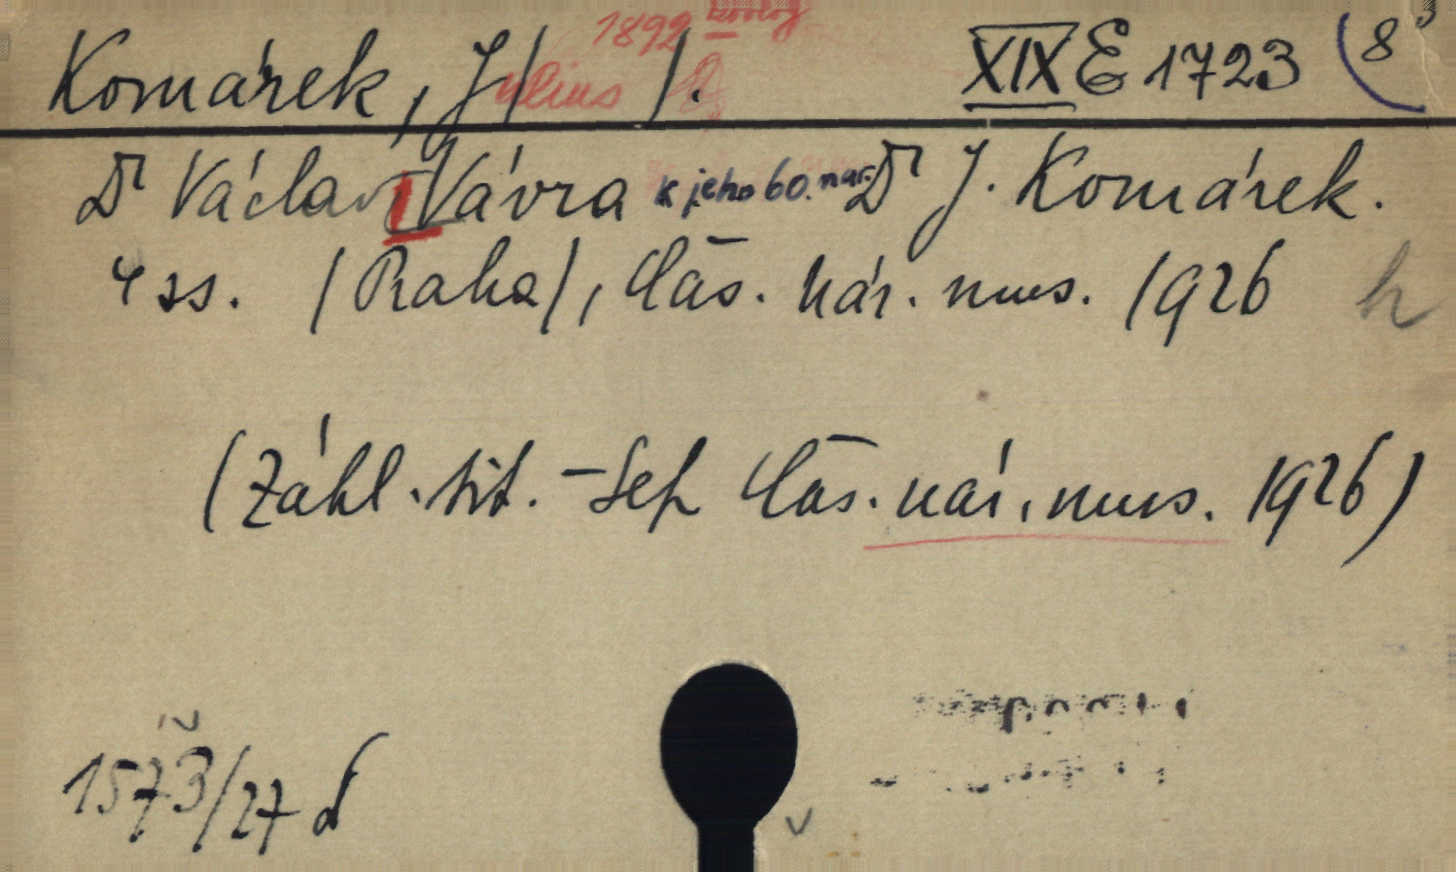 1892
Komárek, J/ulius /. XIX E 1723 (8°
Dr Václav Vávra k jeho 60. nar. Dr J. Komárek.
4 ss. /Praha/, Čas. nár. mus. 1926 h
(Záhl. tit. - Sep Čas. nár. mus. 1926)
1573/27 d